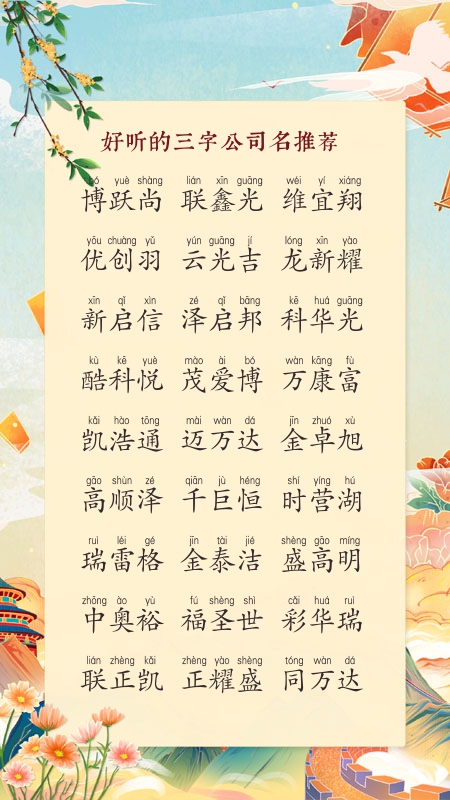 好听的三字公司名推荐
bó yuè shàng lián xīn guāng wéi yí xiáng
博跃尚 联鑫光 维宜翔
yōu chuàng yǔ yún guāng jí lóng xīn yào
优创羽 云光吉 龙新耀
xīn qǐ xìn zé qǐ bāng kē huá guāng
新启信 泽启邦 科华光
kù kē yuè mào ài bó wàn kāng fù
酷科悦 茂爱博 万康富
kǎi hào tōng mài wàn dá jīn zhuó xù
凯浩通 迈万达 金卓旭
gāo shùn zé qiān jù héng shí yíng hú
高顺泽 千巨恒 时营湖
ruì léi gé jīn tài jié shèng gāo míng
瑞雷格 金泰洁 盛高明
zhōng ào yù fú shèng shì cǎi huá ruì
中奥裕 福圣世 彩华瑞
lián zhèng kǎi zhèng yào shèng tóng wàn dá
联正凯 正耀盛 同万达